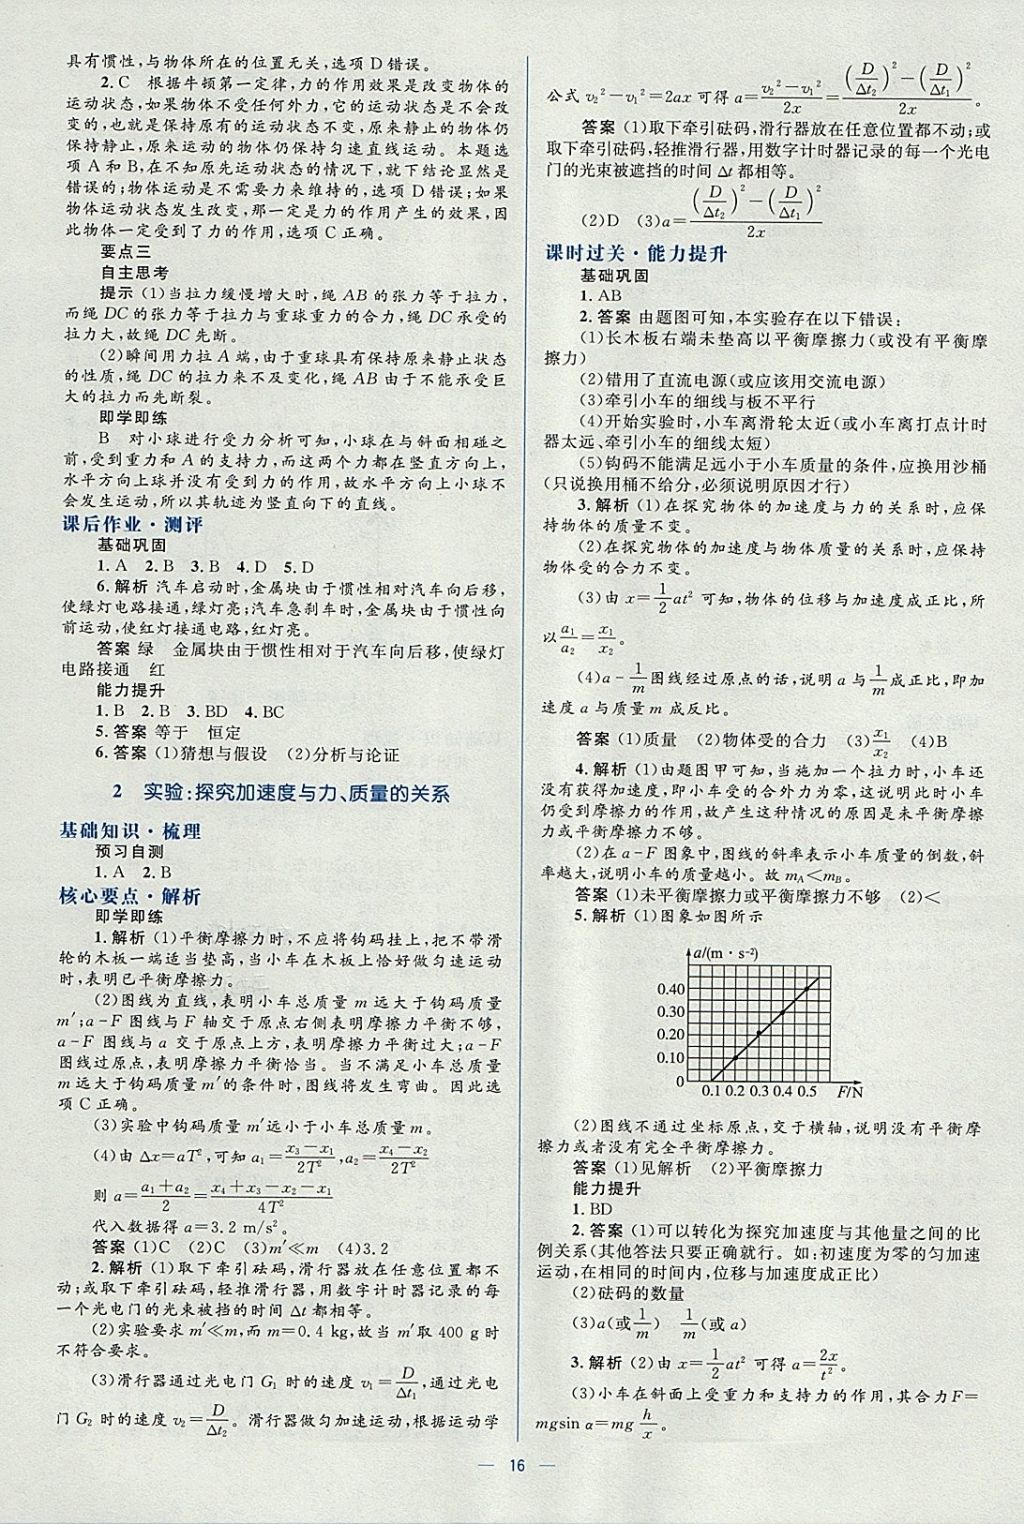 具有惯性,与物体所在的位置无关,选项D错误。
2.C 根据牛顿第一定律,力的作用效果是改变物体的
运动状态,如果物体不受任何外力,它的运动状态是不会改
变的,也就是保持原有的运动状态不变,原来静止的物体仍
保持静止,原来运动的物体仍保持匀速直线运动。本题选
项A和B,在不知原先运动状态的情况下,就下结论显然是
错误的;物体运动是不需要力来维持的,选项D错误;如果
物体运动状态发生改变,那一定是力的作用产生的效果,因
此物体一定受到了力的作用,选项C正确。
要点三
自主思考
提示 (1)当拉力缓慢增大时,绳AB的张力等于拉力,
而绳DC的张力等于拉力与重球重力的合力,绳DC承受的
拉力大,故绳DC先断。
(2)瞬间用力拉A端,由于重球具有保持原来静止状态
的性质,绳DC的拉力来不及变化,绳AB由于不能承受巨
大的拉力而先断裂。
即学即练
B 对小球进行受力分析可知,小球在与斜面相碰之
前,受到重力和A的支持力,而这两个力都在竖直方向上,
水平方向上球并没有受到力的作用,故水平方向上小球不
会发生运动,所以其轨迹为竖直向下的直线。
课后作业·测评
基础巩固
1.A 2.B 3.B 4.D 5.D
6.解析 汽车启动时,金属块由于惯性相对汽车向后移,
使绿灯电路接通,绿灯亮;汽车急刹车时,金属块由于惯性向
前运动,使红灯接通电路,红灯亮。
答案 绿 金属块由于惯性相对于汽车向后移,使绿灯
电路接通 红
能力提升
1.B 2.B 3.BD 4.BC
5.答案 等于 恒定
6.答案 (1)猜想与假设 (2)分析与论证
2 实验:探究加速度与力、质量的关系
基础知识·梳理
预习自测
1.A 2.B
核心要点·解析
即学即练
1.解析 (1)平衡摩擦力时,不应将钩码挂上,把不带滑
轮的木板一端适当垫高,当小车在木板上恰好做匀速运动
时,表明已平衡摩擦力。
(2)图线为直线,表明小车总质量m远大于钩码质量
m′;a-F图线与F轴交于原点右侧表明摩擦力平衡不够,
a-F图线与a交于原点上方,表明摩擦力平衡过大;a-F
图线过原点,表明摩擦力平衡恰当。当不满足小车总质量
m远大于钩码质量m′的条件时,图线将发生弯曲。因此选
项C正确。
(3)实验中钩码质量m′远小于小车总质量m。
(4)由Δx=aT²,可知a₁=(x₃-x₁)/2T²,a₂=(x₄-x₂)/2T²
则a=(a₁+a₂)/2=(x₄+x₃-x₂-x₁)/4T²
代入数据得a=3.2 m/s²。
答案 (1)C (2)C (3)m′≪m (4)3.2
2.解析 (1)取下牵引砝码,滑行器放在任意位置都不
动;或取下牵引砝码,轻推滑行器,用数字计时器记录的每
一个光电门的光束被挡的时间Δt都相等。
(2)实验要求m′≪m,而m=0.4 kg,故当m′取400 g时
不符合要求。
(3)滑行器通过光电门G₁时的速度v₁=D/Δt₁,通过光电
门G₂时的速度v₂=D/Δt₂。滑行器做匀加速运动,根据运动学
公式v₂²-v₁²=2ax可得a=(v₂²-v₁²)/2x=((D/Δt₂)²-(D/Δt₁)²)/2x。
答案 (1)取下牵引砝码,滑行器放在任意位置都不动;或
取下牵引砝码,轻推滑行器,用数字计时器记录的每一个光电
门的光束被遮挡的时间Δt都相等。
(2)D (3)a=((D/Δt₂)²-(D/Δt₁)²)/2x
课时过关·能力提升
基础巩固
1.AB
2.答案 由题图可知,本实验存在以下错误:
(1)长木板右端未垫高以平衡摩擦力(或没有平衡摩
擦力)
(2)错用了直流电源(或应该用交流电源)
(3)牵引小车的细线与板不平行
(4)开始实验时,小车离滑轮太近(或小车离打点计时
器太远、牵引小车的细线太短)
(5)钩码不能满足远小于小车质量的条件,应换用沙桶
(只说换用桶不给分,必须说明原因才行)
3.解析 (1)在探究物体的加速度与力的关系时,应保
持物体的质量不变。
(2)在探究物体的加速度与物体质量的关系时,应保持
物体受的合力不变。
(3)由x=1/2at²可知,物体的位移与加速度成正比,所
以a₁/a₂=x₁/x₂。
(4)a-1/m图线经过原点的话,说明a与1/m成正比,即加
速度a与质量m成反比。
答案 (1)质量 (2)物体受的合力 (3)x₁/x₂ (4)B
4.解析 (1)由题图甲可知,当施加一个拉力时,小车还
没有获得加速度,即小车受的合外力为零,这说明此时小车
仍受到摩擦力的作用,故产生这种情况的原因是未平衡摩
擦力或平衡摩擦力不够。
(2)在a-F图象中,图线的斜率表示小车质量的倒数,斜
率越大,说明小车的质量越小。故mA<mB。
答案 (1)未平衡摩擦力或平衡摩擦力不够 (2)<
5.解析 (1)图象如图所示
a/(m·s⁻²)
0.40
0.30
0.20
0.10
0
0.1 0.2 0.3 0.4 0.5 F/N
(2)图线不通过坐标原点,交于横轴,说明没有平衡摩
擦力或者没有完全平衡摩擦力。
答案 (1)见解析 (2)平衡摩擦力
能力提升
1.BD
2.答案 (1)可以转化为探究加速度与其他量之间的比
例关系(其他答法只要正确就行。如:初速度为零的匀加速
运动,在相同的时间内,位移与加速度成正比)
(2)砝码的数量
(3)a(或1/m) 1/m(或a)
3.解析 (2)由x=1/2at²可得a=2x/t²。
(3)小车在斜面上受重力和支持力的作用,其合力F=
mgsin α=mg h/x。
16